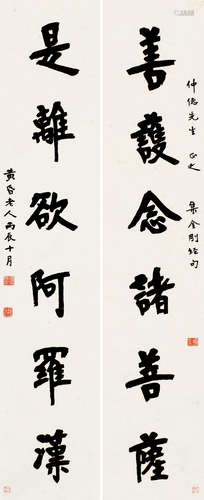 仲先生 正之 集金剛經句
善護念諸菩薩
是離欲阿羅漢
黃昏老人丙辰十月